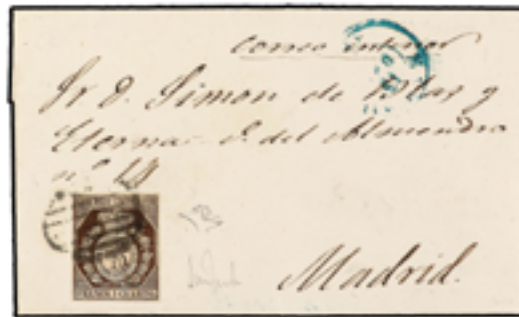 Correo interior
Sr. D. Simon de Blas y
Eterna S. del Almendro
nº
Madrid.